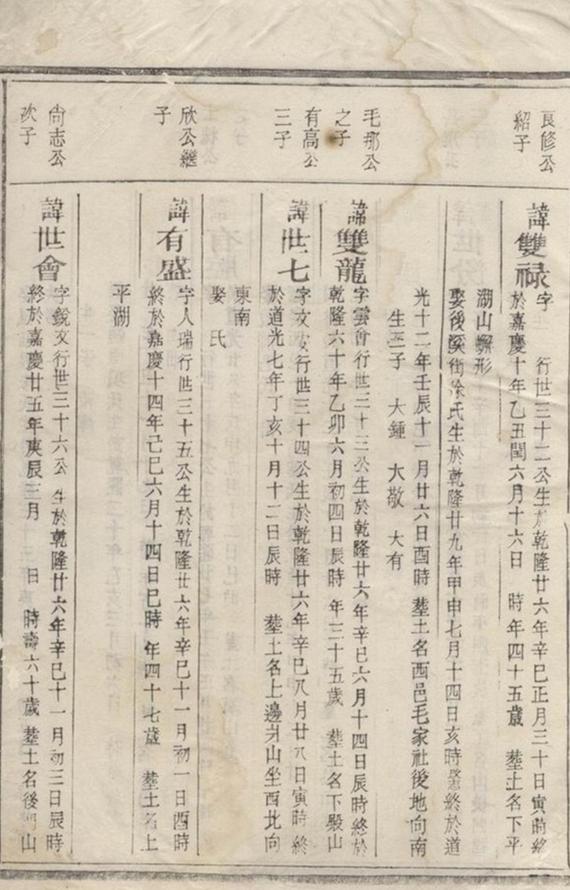 良修公
紹子
諱雙祿
字 行世三十二公生於乾隆廿六年辛巳正月三十日寅時終
於嘉慶十年乙丑閏六月十六日 時年四十五歲 塟土名下平
湖山 形
娶後溪街徐氏生於乾隆廿九年甲申七月十四日亥時 終於道
光十二年壬辰十一月廿六日酉時 塟土名西邑毛家社後地向南
生三子 大鍾 大敬 大有
毛那公
之子
諱雙龍
字雲會行世三十三公生於乾隆廿六年辛巳六月十四日辰時終於
乾隆六十年乙卯六月初四日辰時 年三十五歲 塟土名下殿山
有高公
三子
諱世七
字文 行世三十四公生於乾隆廿六年辛巳八月廿八日寅時終
於道光七年丁亥十月十二日辰時 塟土名上邊 山坐西北向
東南
娶 氏
欣公繼
子
諱有盛
字人瑞行世三十五公生於乾隆廿六年辛巳十一月初一日酉時
終於嘉慶十四年己巳六月十四日巳時 年四十七歲 塟土名上
平湖
尚志公
次子
諱世會
字銳文行世三十六公 生於乾隆廿六年辛巳十一月初三日辰時
終於嘉慶廿五年庚辰三月 日 時壽六十歲 塟土名後 山